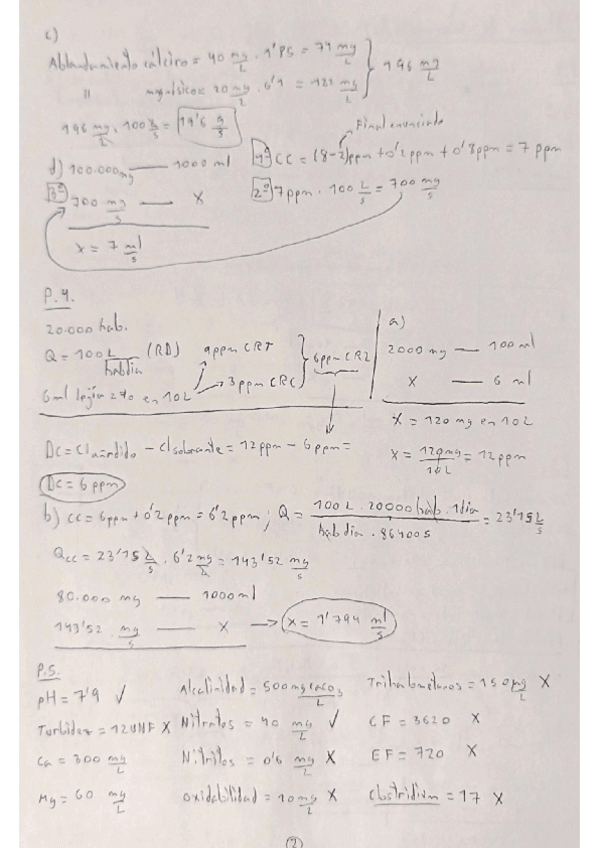 c)
Ablandamiento cálcico = 40 mg/L · 1'85 = 74 mg/L } 196 mg/L
" magnésico = 20 mg/L · 6'1 = 122 mg/L
196 mg/L · 100 L/s = 19'6 g/s
Final enunciado
d) 100.000 mg — 1000 ml
1º CC = (8-2)ppm + 0'2ppm + 0'8ppm = 7 ppm
3º 700 mg/s — x
2º 7ppm · 100 L/s = 700 mg/s
x = 7 ml/s
P.4.
20.000 hab.
Q = 100 L/hab dia (RD)
9ppm CRT
3ppm CRC
6ppm CRL
6ml lejía 2% en 10L
a)
2000 mg — 100 ml
x — 6 ml
x = 120 mg en 10L
x = 120mg/10L = 12ppm
DC = Cl añadido - Cl sobrante = 12ppm - 6ppm =
DC = 6 ppm
b) CC = 6ppm + 0'2ppm = 6'2ppm; Q = 100L · 20000 hab · 1dia / hab dia · 86400s = 23'15 L/s
Qcc = 23'15 L/s · 6'2 mg/L = 143'52 mg/s
80.000 mg — 1000ml
143'52 mg/s — x → x = 1'794 ml/s
P.5.
pH = 7'9 ✓ Alcalinidad = 500 mg CaCO3/L Trihalometanos = 150 µg/L X
Turbidez = 12 UNF X Nitratos = 40 mg/L ✓ CF = 3620 X
Ca = 300 mg/L Nitritos = 0'6 mg/L X EF = 720 X
Mg = 60 mg/L Oxidabilidad = 10 mg/L X Clostridium = 17 X
(2)